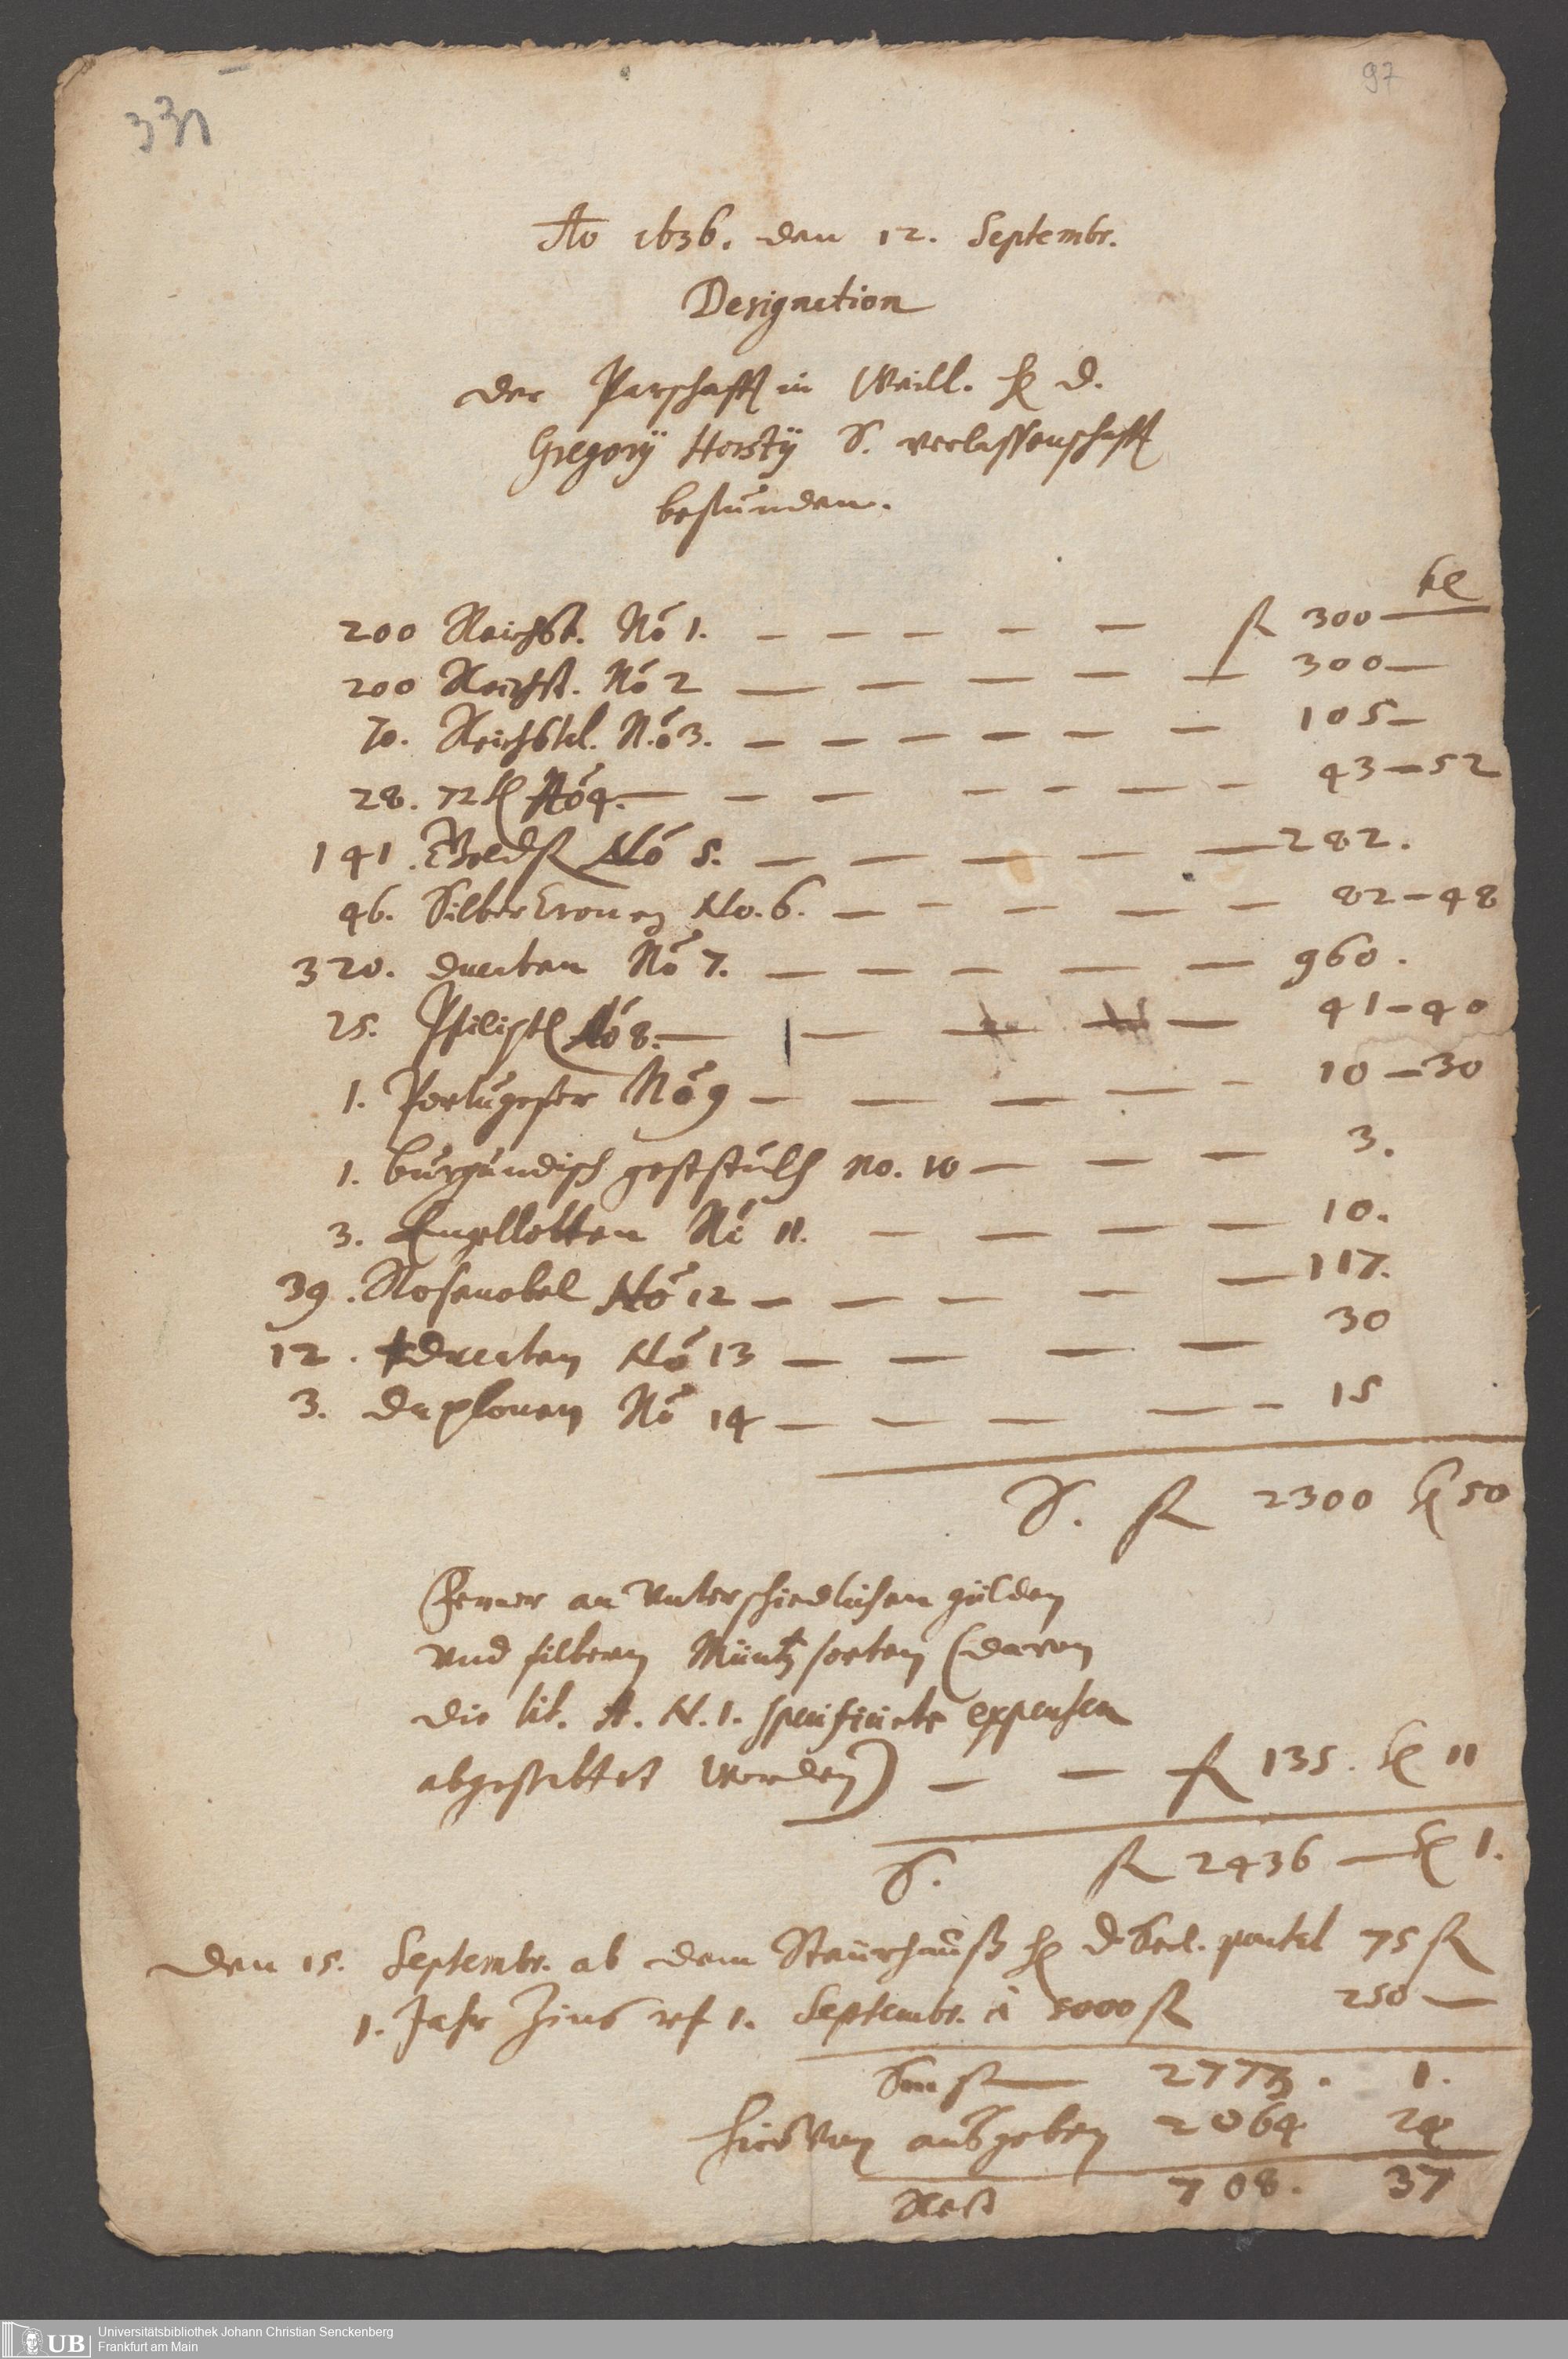 331
97
Ao 1636. den 12. Septembr.
Designation
der Parschafft in Weill. H D.
Gregorÿ Horstÿ S. verlassenschafft
befunden.
kr
200 Reichst. No 1. — — — — — fl 300 —
200 Reichst. No 2 — — — — — 300 —
70. Reichstal. No 3. — — — — — — — 105 —
28. 72 No 4. — — — — — — — 43 — 52
141. Goldfl No 5. — — — — — 282.
46. Silber Cronen No. 6. — — — — — 82 — 48
320. ducaten No 7. — — — — — 960.
25. Philipst No 8. — — — — — 41 — 40
1. Portugeser No 9 — — — — — 10 — 30
1. burgundisch No. 10 — — — 3.
3. Engellotten No 11. — — — — 10.
39. Rosenobel No 12 — — — — — 117.
12. ducaten No 13 — — — — 30
3. duplonen No 14 — — — — — 15
S. fl 2300 kr 50
Ferner an Unterschiedlichen gülden
und silbern Müntz sorten (davon
die lit. A. N. 1. specificirte expensen
abgestattet worden) — — fl 135. kr 11
S. fl 2436 — kr 1.
den 15. Septembr. ab dem Steürhauß H D 75 fl
1. Jahr Zins uf 1. Septembr. à 5000 fl 250 —
Sm fl — 2773. 1.
hievon ausgeben 2064 24
Rest 708. 37
UB
Universitätsbibliothek Johann Christian Senckenberg
Frankfurt am Main